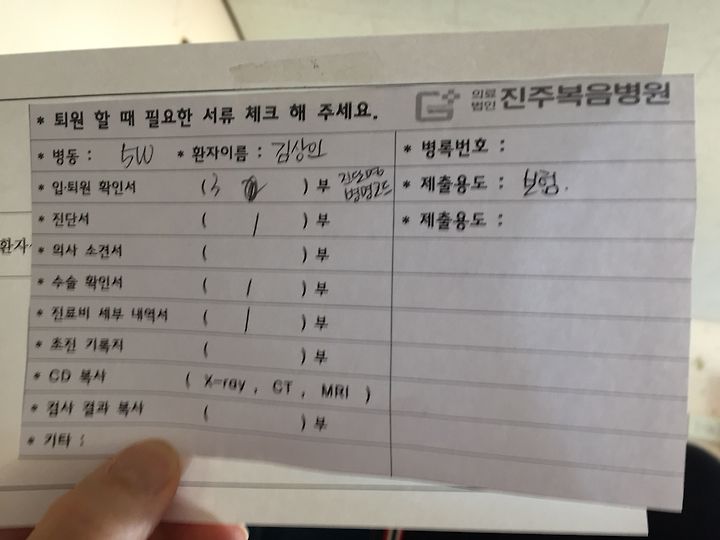 의료법인 진주복음병원
* 퇴원 할 때 필요한 서류 체크 해 주세요.
* 병동 : 5W * 환자이름 : 김상의
* 입·퇴원 확인서 ( 3 ) 부 진단명 병명코드
* 진단서 ( 1 ) 부
* 의사 소견서 ( ) 부
* 수술 확인서 ( 1 ) 부
* 진료비 세부 내역서 ( 1 ) 부
* 초진 기록지 ( ) 부
* CD 복사 ( X-ray , CT , MRI )
* 검사 결과 복사 ( ) 부
* 기타 :
* 병록번호 :
* 제출용도 : 보험.
* 제출용도 :
환자